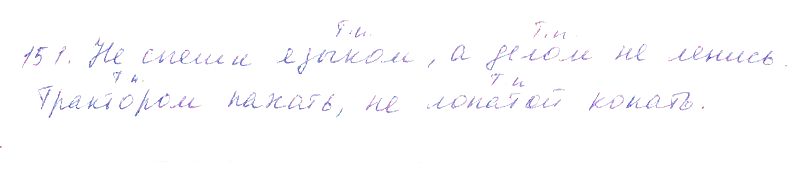 Т.п. Т.п.
151. Не спеши языком, а делом не ленись.
Т п. Т п
Трактором пахать, не лопатой копать.